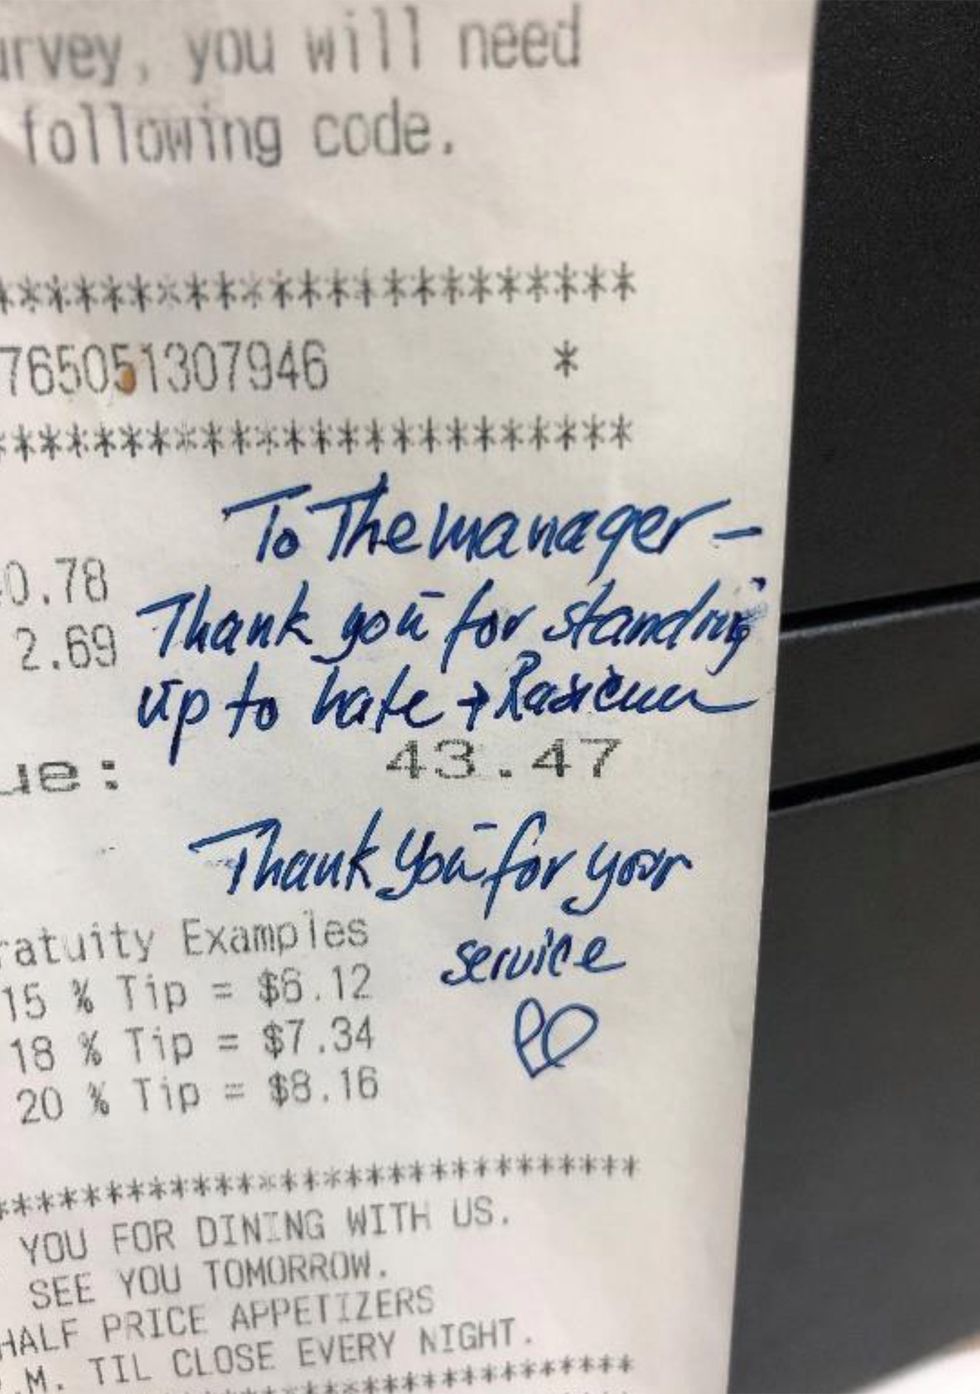 urvey, you will need
following code.
************************
765051307946 *
************************
To The manager –
0.78
Thank you for standing
2.69
up to hate + Racism
ue: 43.47
Thank you for your
ratuity Examples
service
15 % Tip = $6.12
18 % Tip = $7.34
20 % Tip = $8.16
************************
YOU FOR DINING WITH US.
SEE YOU TOMORROW.
HALF PRICE APPETIZERS
.M. TIL CLOSE EVERY NIGHT.
************************